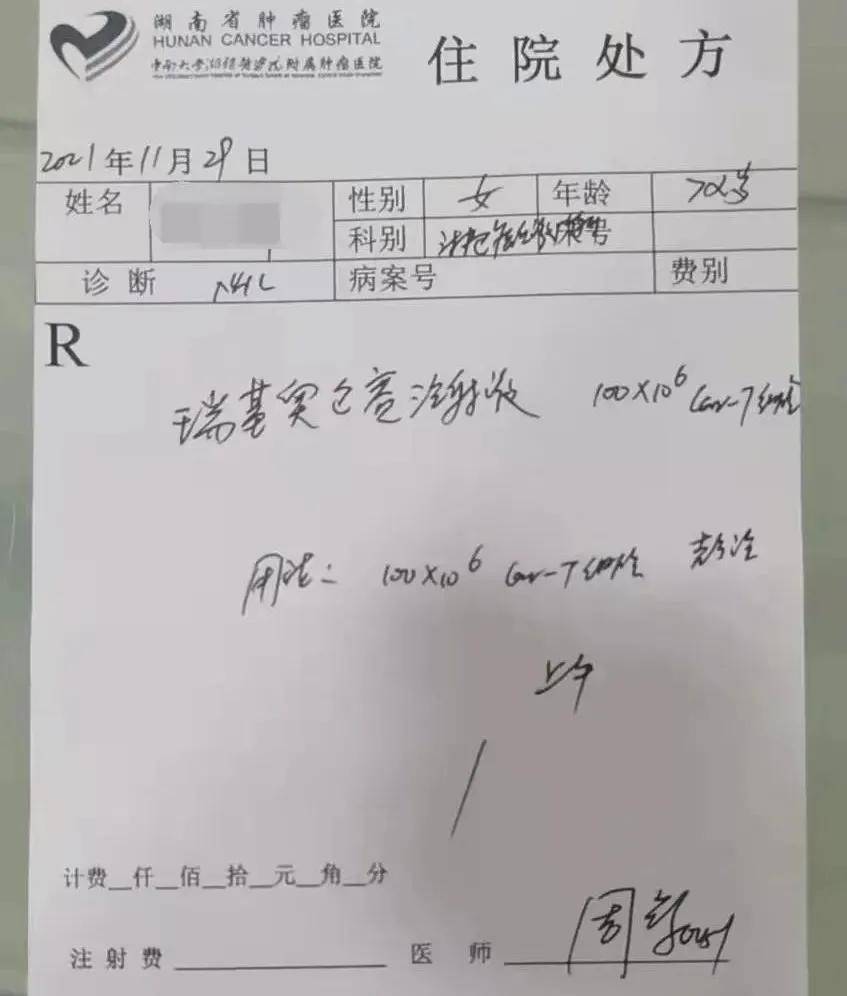 湖南省肿瘤医院
HUNAN CANCER HOSPITAL
中南大学湘雅医学院附属肿瘤医院
住院处方
2021年11月29日
姓名 性别 女 年龄 72岁
科别
诊断 NHL 病案号 费别
R
瑞基奥仑赛注射液 100×10⁶ Car-T细胞
用法: 100×10⁶ Car-T细胞
上午
计费__仟__佰__拾__元__角__分
注射费 医师 周